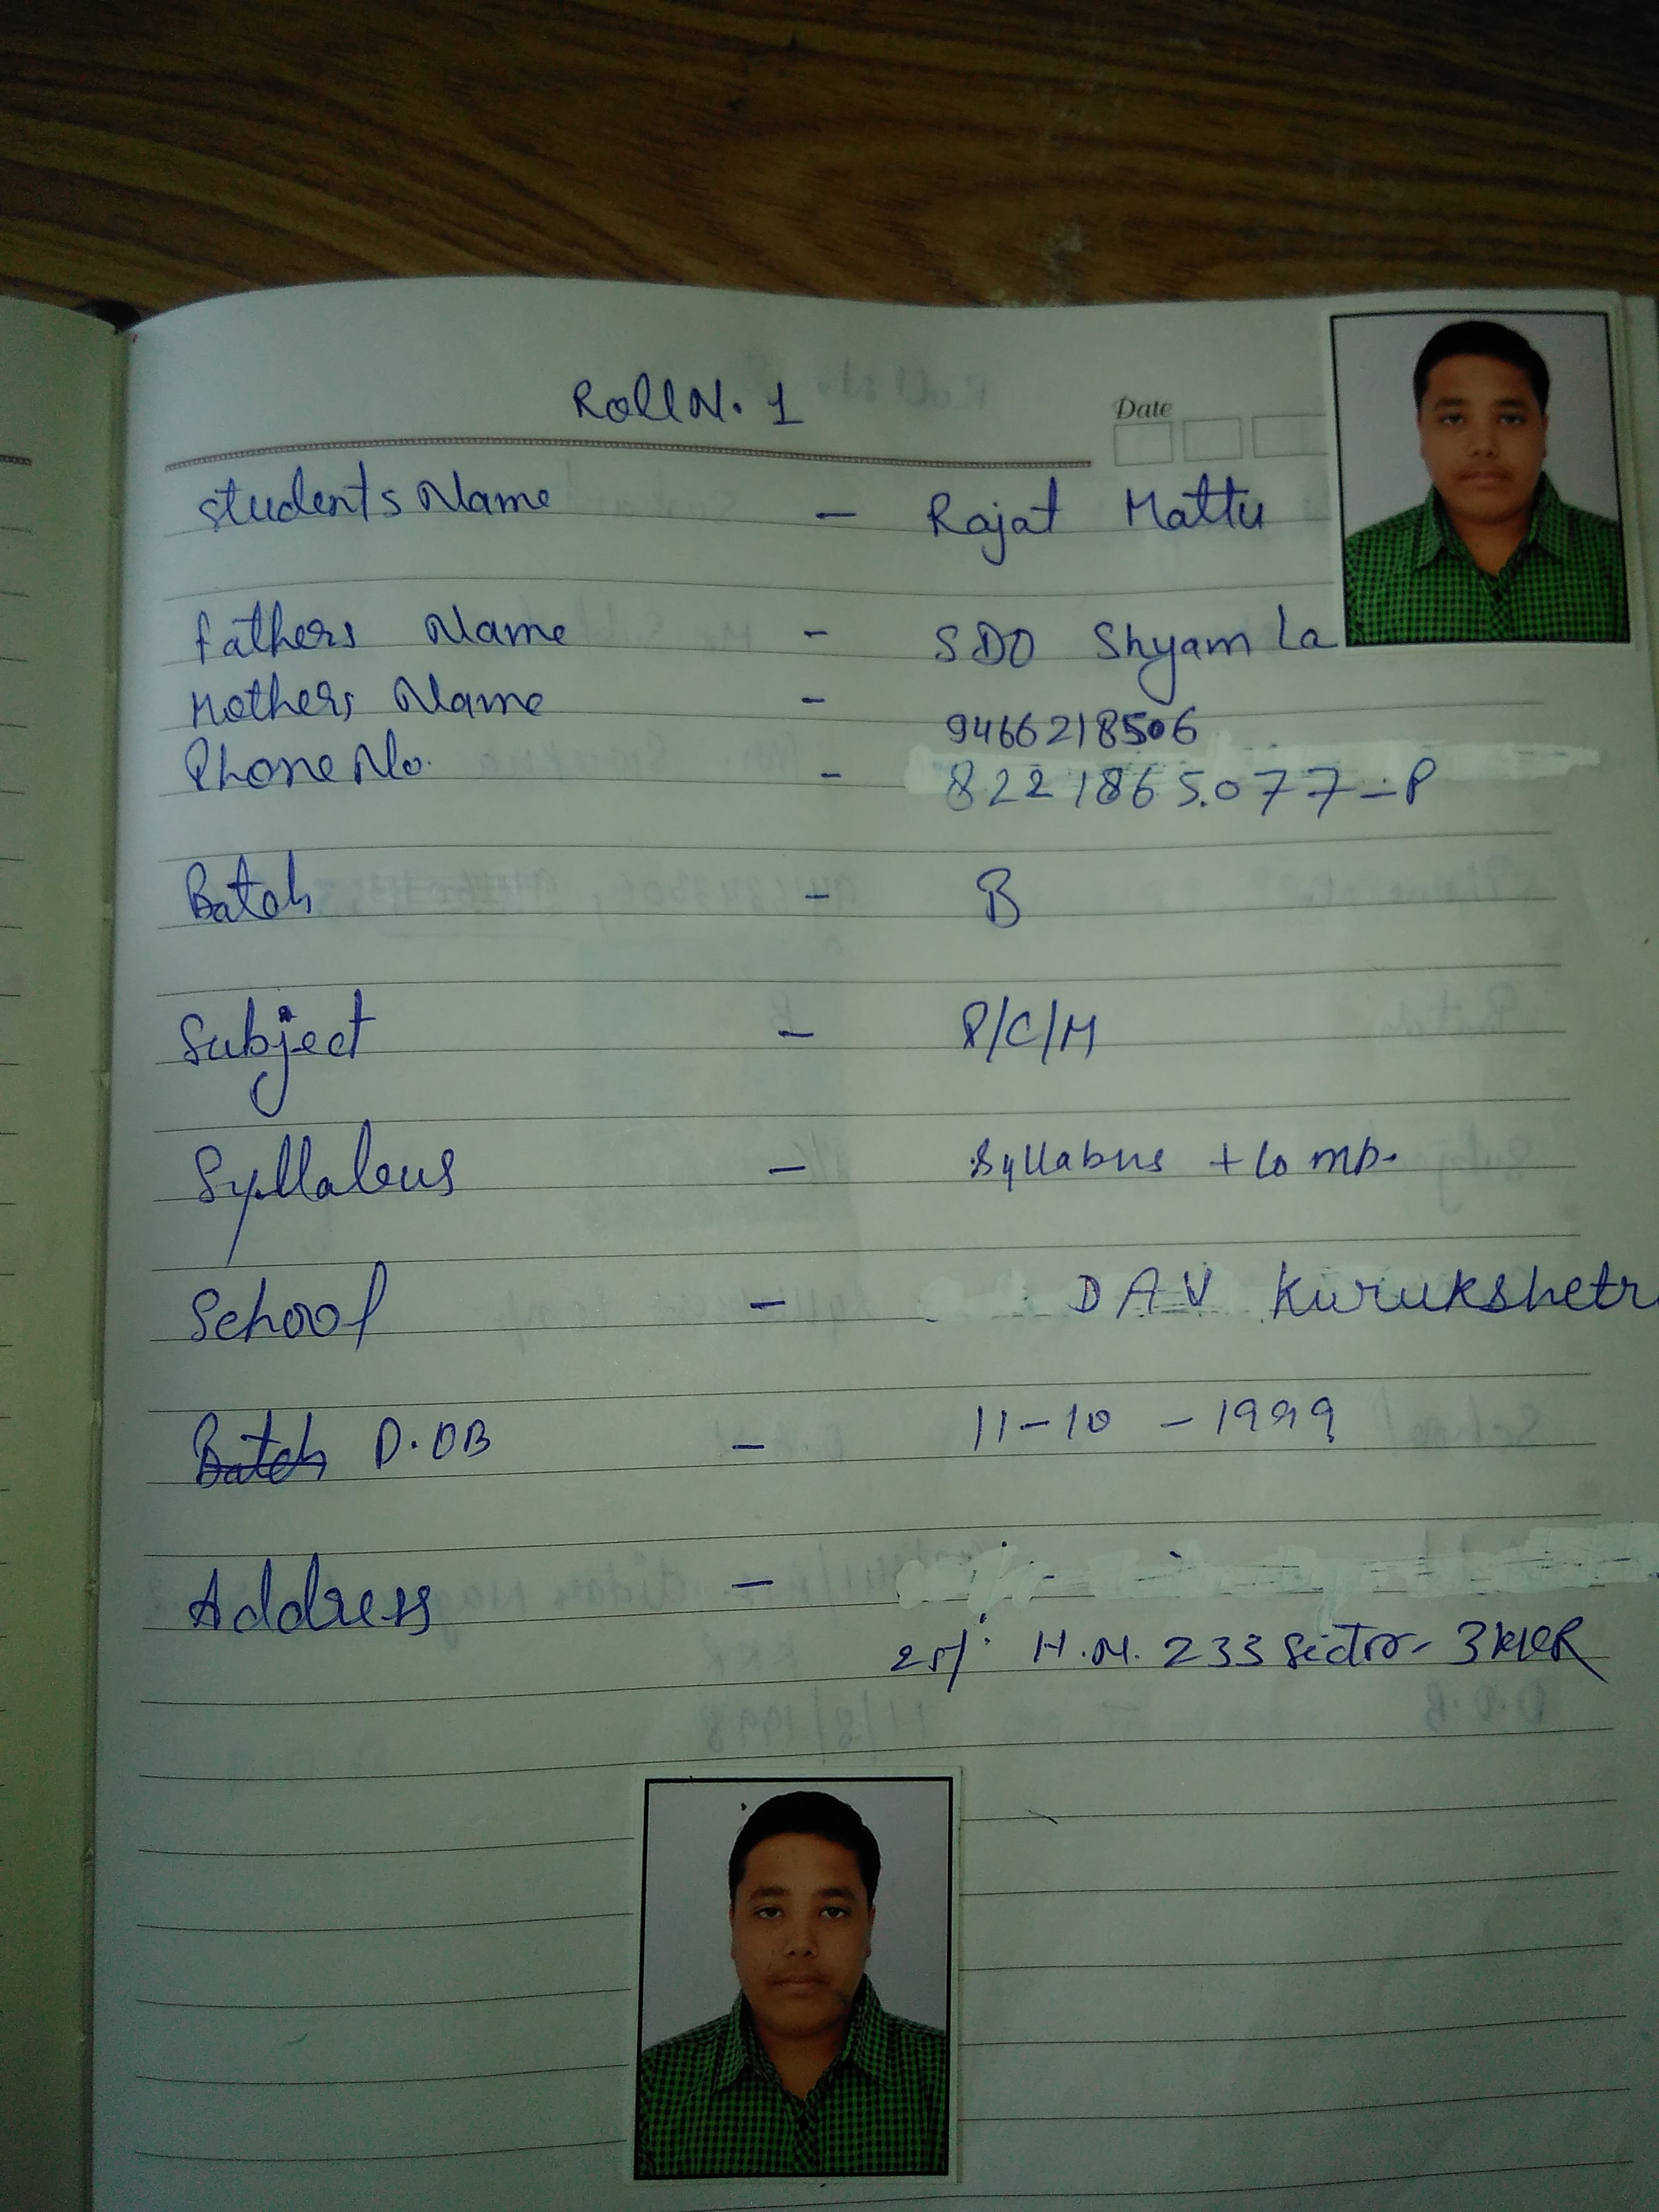 Roll N. 1
Date
Students Name - Rajat Mattu
Fathers Name - SDO Shyam La
Mothers Name -
9466218506
Phone No. - 8221865077-P
Batch - B
Subject - P/C/M
Syllabus - Syllabus + Comp.
School - DAV Kurukshetr
Batch D.OB - 11-10-1999
Address -
H.N. 233 Sector-3 KKR